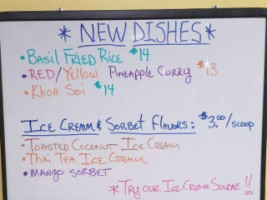 * NEW DISHES *
• BASIL FRIED RICE $14
• RED/YELLOW PINEAPPLE CURRY $13
• KHOA SOI $14
ICE CREAM & SORBET FLAVORS: $3.00/SCOOP
• TOASTED COCONUT ICE CREAM
• THAI TEA ICE CREAM
• MANGO SORBET
* TRY OUR ICE CREAM SUNDAE!!